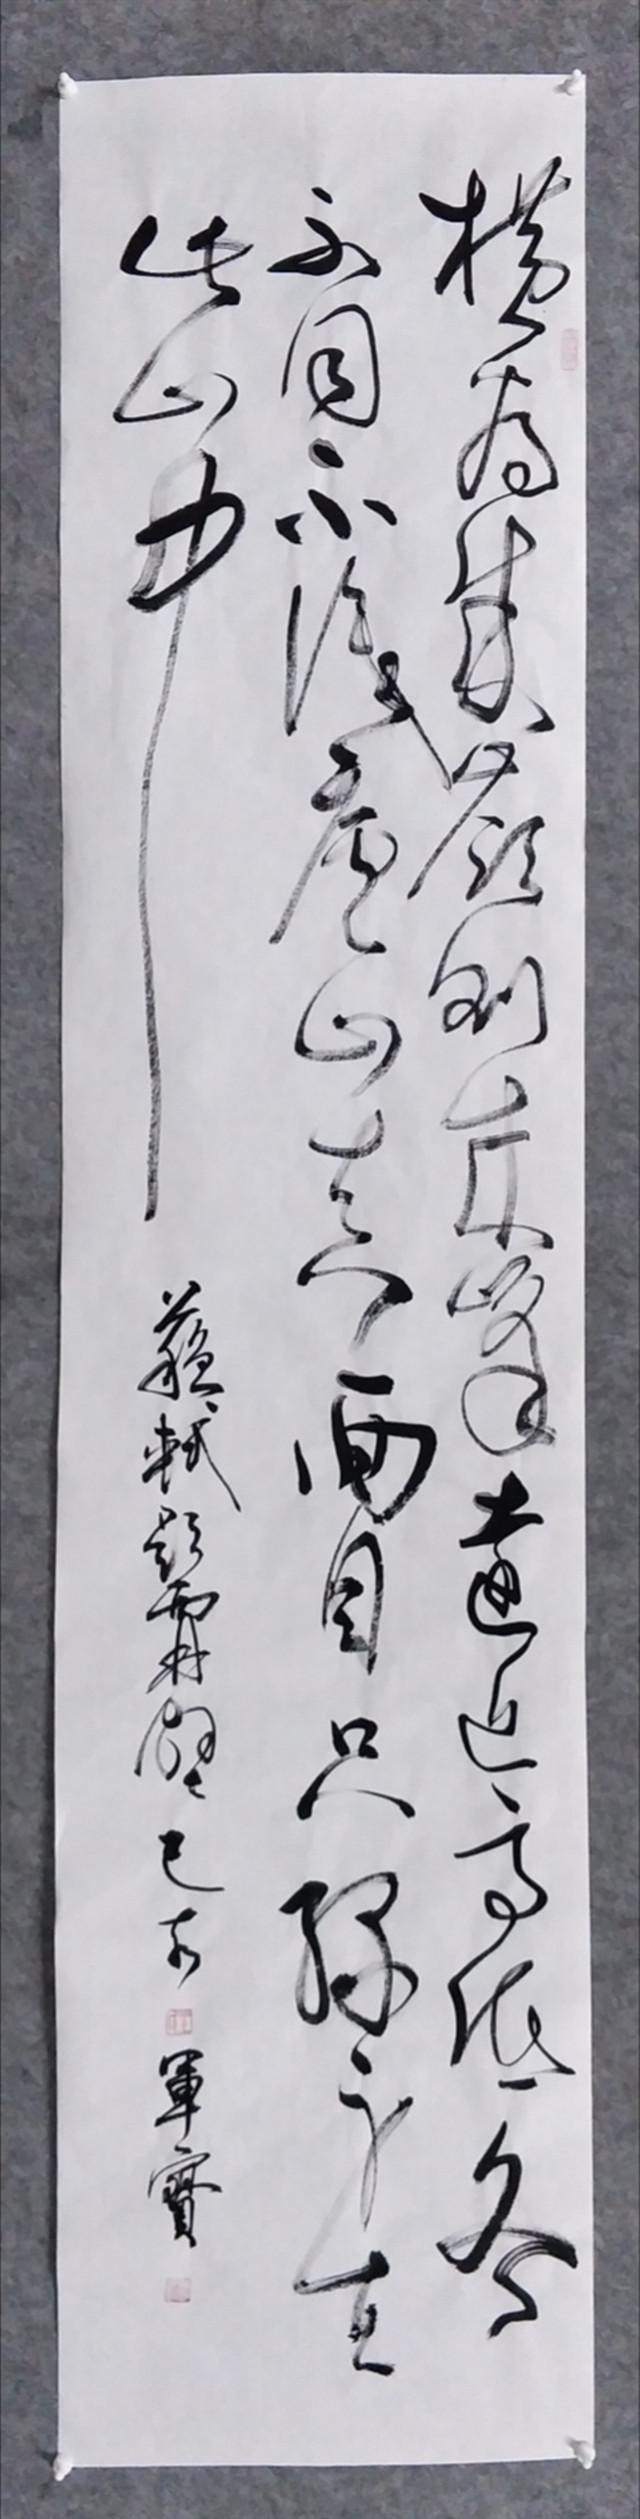 橫看成嶺側成峰遠近高低各
不同不識廬山真面目只緣身在
此山中
蘇軾題西林壁 己亥 軍實